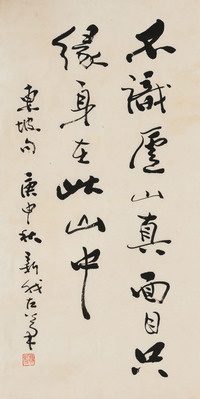 不識廬山真面目只
緣身在此山中
東坡句 庚申秋 新我左筆